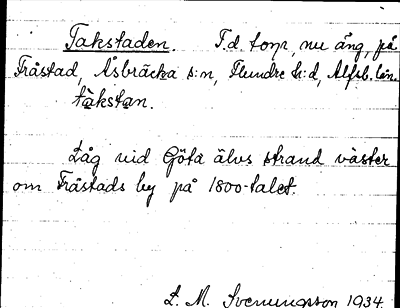 Takstaden. F.d. torp, nu äng, på
Fråstad, Åsbräcka s:n, Flundre h:d, Älfsb. län.
tàkstan.
Låg vid Göta älvs strand väster
om Fråstads by på 1800-talet.
L. M. Svenungsson 1934.